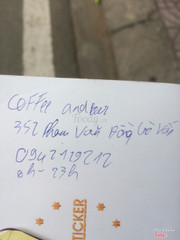 Coffee and beer
352 Phạm Văn Đồng Gò Vấp
0942129212
8h - 23h
STICKER